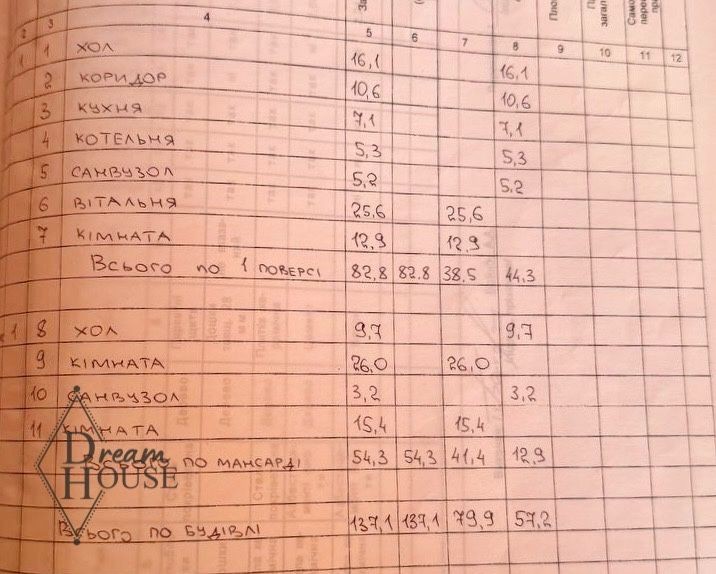 2 3 4 5 6 7 8 9 10 11 12
1 1 ХОЛ 16,1 16,1
2 КОРИДОР 10,6 10,6
3 КУХНЯ 7,1 7,1
4 КОТЕЛЬНЯ 5,3 5,3
5 САНВУЗОЛ 5,2 5,2
6 ВІТАЛЬНЯ 25,6 25,6
7 КІМНАТА 12,9 12,9
ВСЬОГО ПО 1 ПОВЕРСІ 82,8 82,8 38,5 44,3
1 8 ХОЛ 9,7 9,7
9 КІМНАТА 26,0 26,0
10 САНВУЗОЛ 3,2 3,2
11 КІМНАТА 15,4 15,4
ВСЬОГО ПО МАНСАРДІ 54,3 54,3 41,4 12,9
Dream
HOUSE
ВСЬОГО ПО БУДІВЛІ 137,1 137,1 79,9 57,2